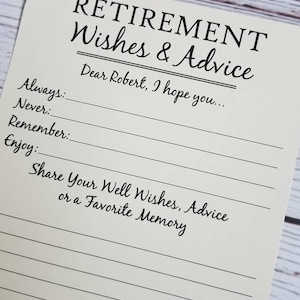 RETIREMENT
Wishes & Advice
Dear Robert, I hope you...
Always:
Never:
Remember:
Enjoy:
Share Your Well Wishes, Advice
or a Favorite Memory